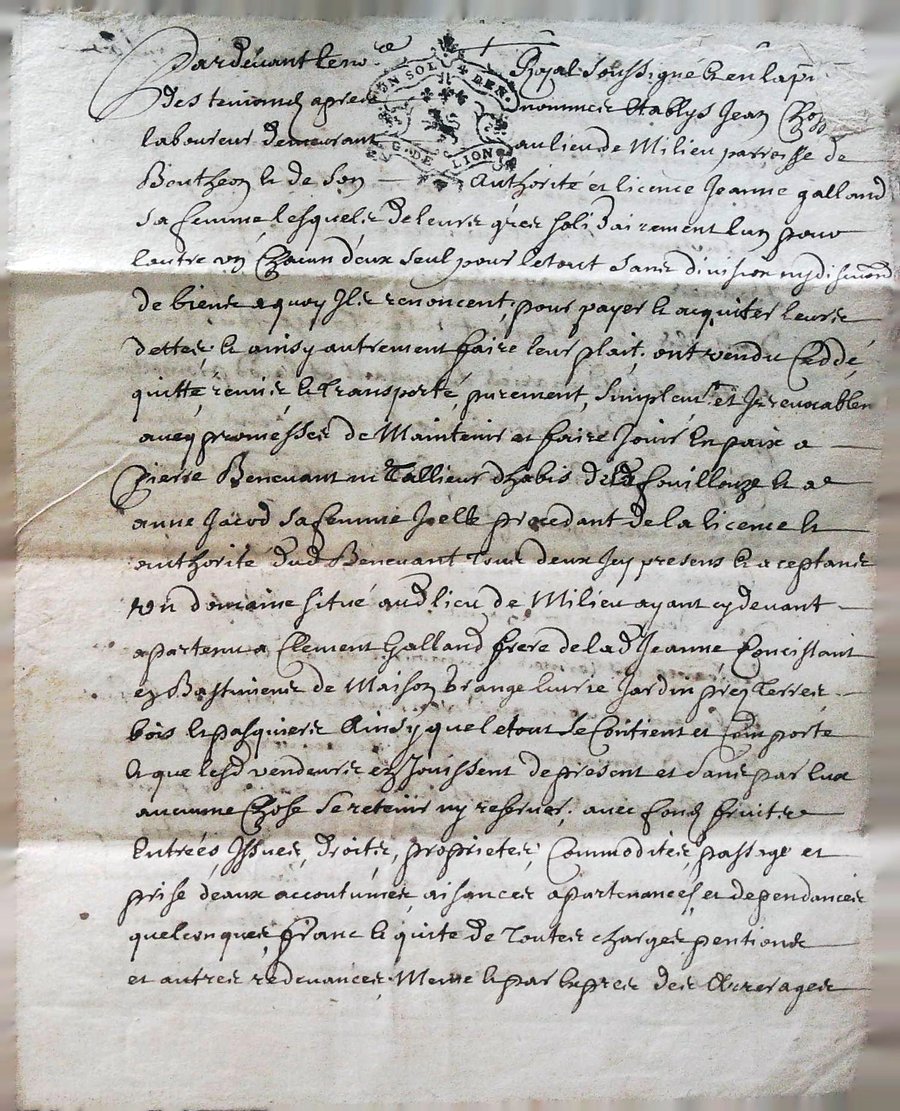 Pardevant le no.re Royal soussigné et en la pn
des temoins apres nommes etablys Jean
laboureur demeurant au lieu de Milieu parroisse de
Boutheon et de son authorité et licence Jeanne galland
sa femme lesquels de leurs gres solidairement l'un pour
lautre un chacun deux seul pour letout sans division ny discution
de biens a quoy Ils renoncent, pour payer et acquiter leurs
dettes, et ainsy autrement faire leur plait, ont vendu Ceddé
quitté, remis et transporté, purement, simplem.t et Irrevocablem
avecq promesses de Maintenir et faire Jouir en paix a
Pierre Benevant m tallieur dhabis de la fouillouze et a
anne Jacod sa femme Icelle procedant de la licence et
authorité dud Benevant tous deux Icy presens et aceptans
Un domaine situé aud lieu de Milieu ayant cy devant
apartenu a Clement Galland frere de lad Jeanne, Concistant
en Bastimens de Maison grange Jardin prez terres
bois et pasquiers Ainsy que letout se Contient et Comporte
et que lesd vendeurs en Jouissent de present et sans par eux
aucune chose se retenir ny reserver, avec fond fruits
Entrées, Issues, droits, proprietes, Commodites, passage et
prise deaux accoutumées, aisances apartenances, et dependances
quelconques, franc et quite de toutes charges pentions
et autres redevances, Meme et par expres des Arrerages
EN SOL DEN.
G. DE LION